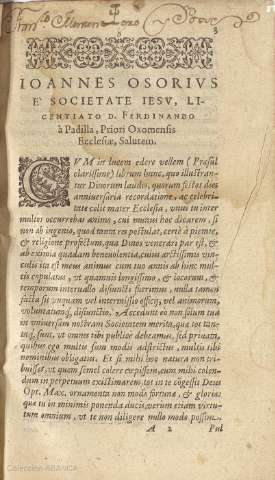 3
IOANNES OSORIVS
E' SOCIETATE IESV, LI-
CENTIATO D. FERDINANDO
à Padilla, Priori Oxomensis
Ecclesiæ, Salutem.
CVM in lucem edere vellem (Præsul
clarissime) librum hunc, quo illustran-
tur Diuorum laudes, quorum festos dies
anniuersaria recordatione, ac celebri-
tate colit mater Ecclesia, vnus in inter
multos occurrebas animo, cui munus hoc dicarem: si
non ab ingenio, quod tanta res postulat, certè à pietate,
& religione profectum, qua Diuos venerari par est, &
ab eximia quadam beneuolentia, cuius arctissimis vin-
culis ita est meus animus cum tuo annis ab hinc mul-
tis copulatus, vt quamuis longissimo, & locorum, &
temporum interuallo disiuncti fuerimus, nulla tamen
facta sit vnquam vel intermissio officij, vel animorum,
voluntatumq́, disiunctio. Accedunt eò non solum tua
in vniuersam nostram Societatem merita, quæ tot tan-
taq́, sunt, vt omnes tibi publicè debeamus, sed priuata,
quibus ego multis sum modis adstrictus, multis tibi
nominibus obligatus. Et si mihi hoc natura non tri-
buisset, vt quem semel colere cœpissem, eum mihi colen-
dum in perpetuum existimarem, tot in te cōgessit Deus
Opt. Max. ornamenta non modò fortunæ, & gloriæ
quæ in minimis ponenda duci; verùm etiam virtu-
tum omnium, vt te non diligere nullo modo possim.
A 2 Pul
Colección ABANCA